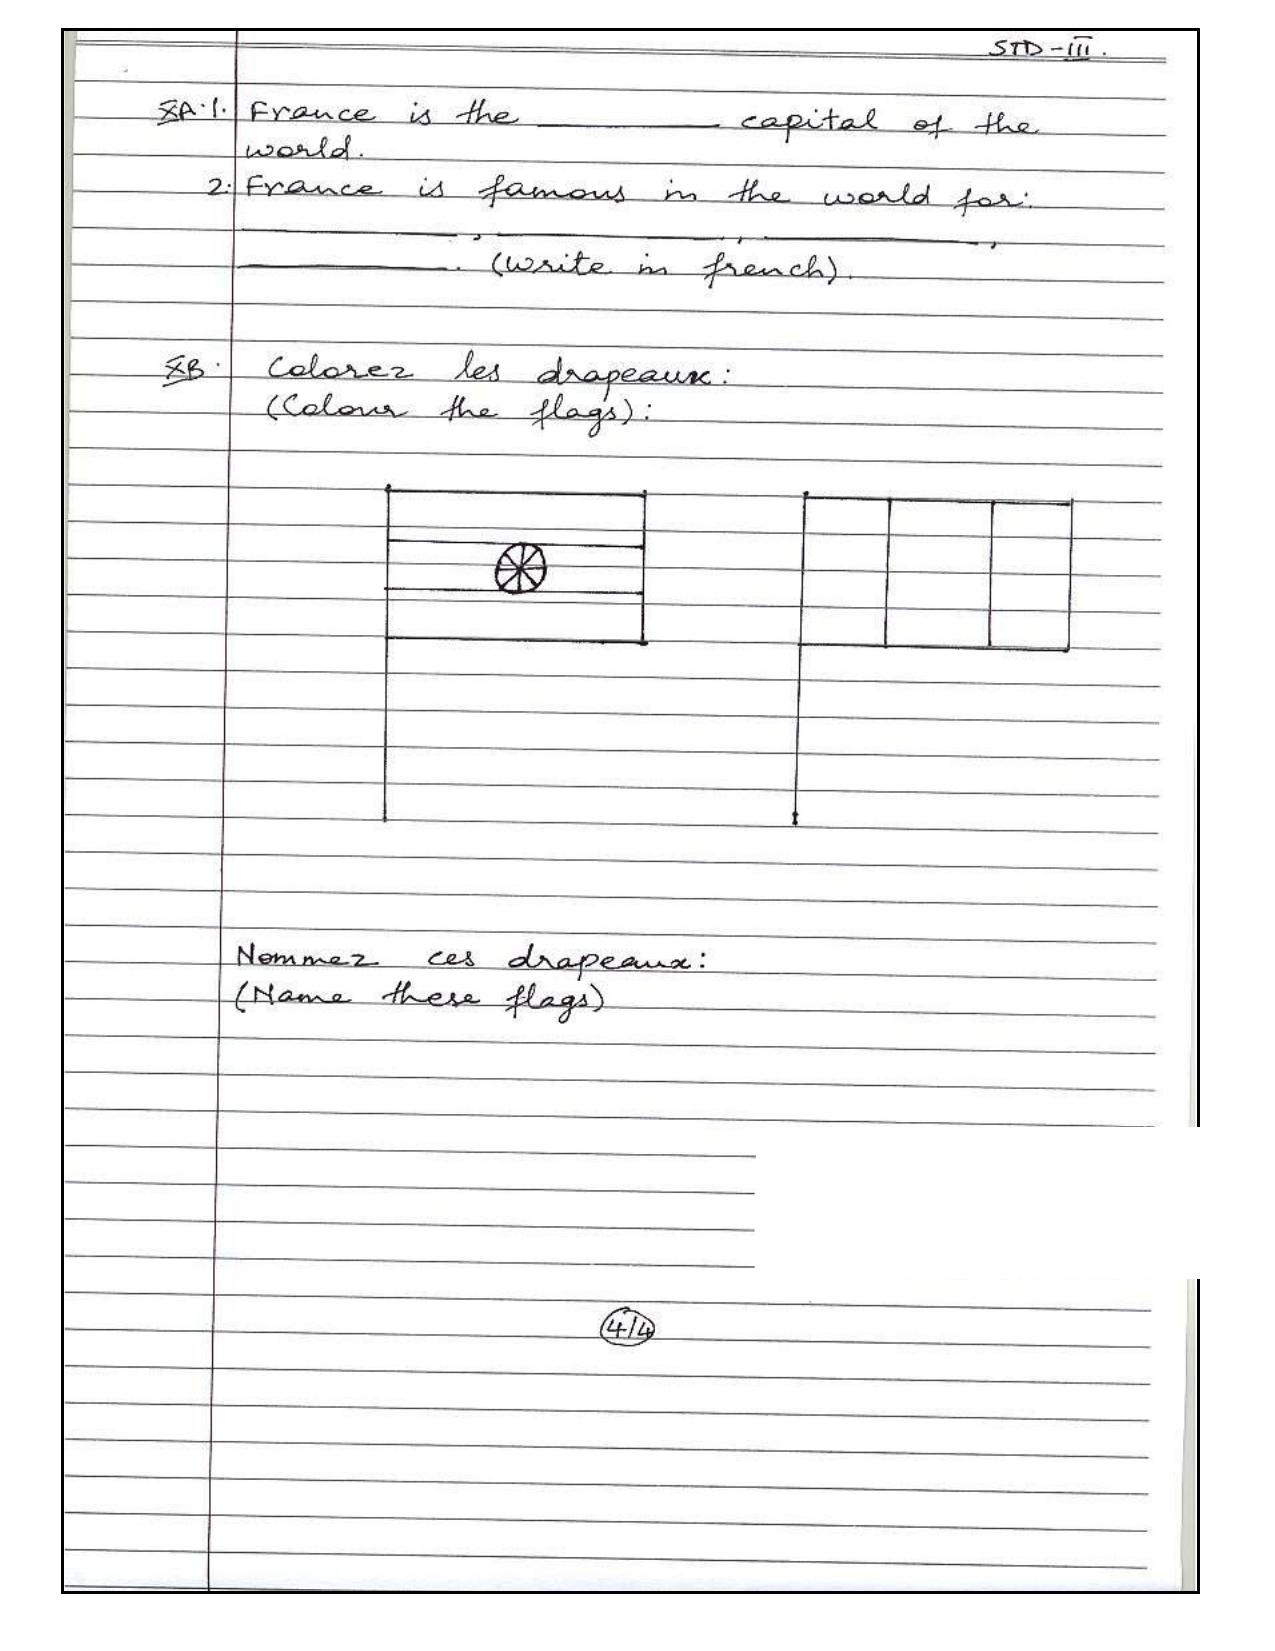 STD-III.
XA.1. France is the ________ capital of the
world.
2. France is famous in the world for:
________, ________, ________,
________. (write in french).
XB. Colorez les drapeaux:
(Colour the flags):
Nommez ces drapeaux:
(Name these flags)
4/4